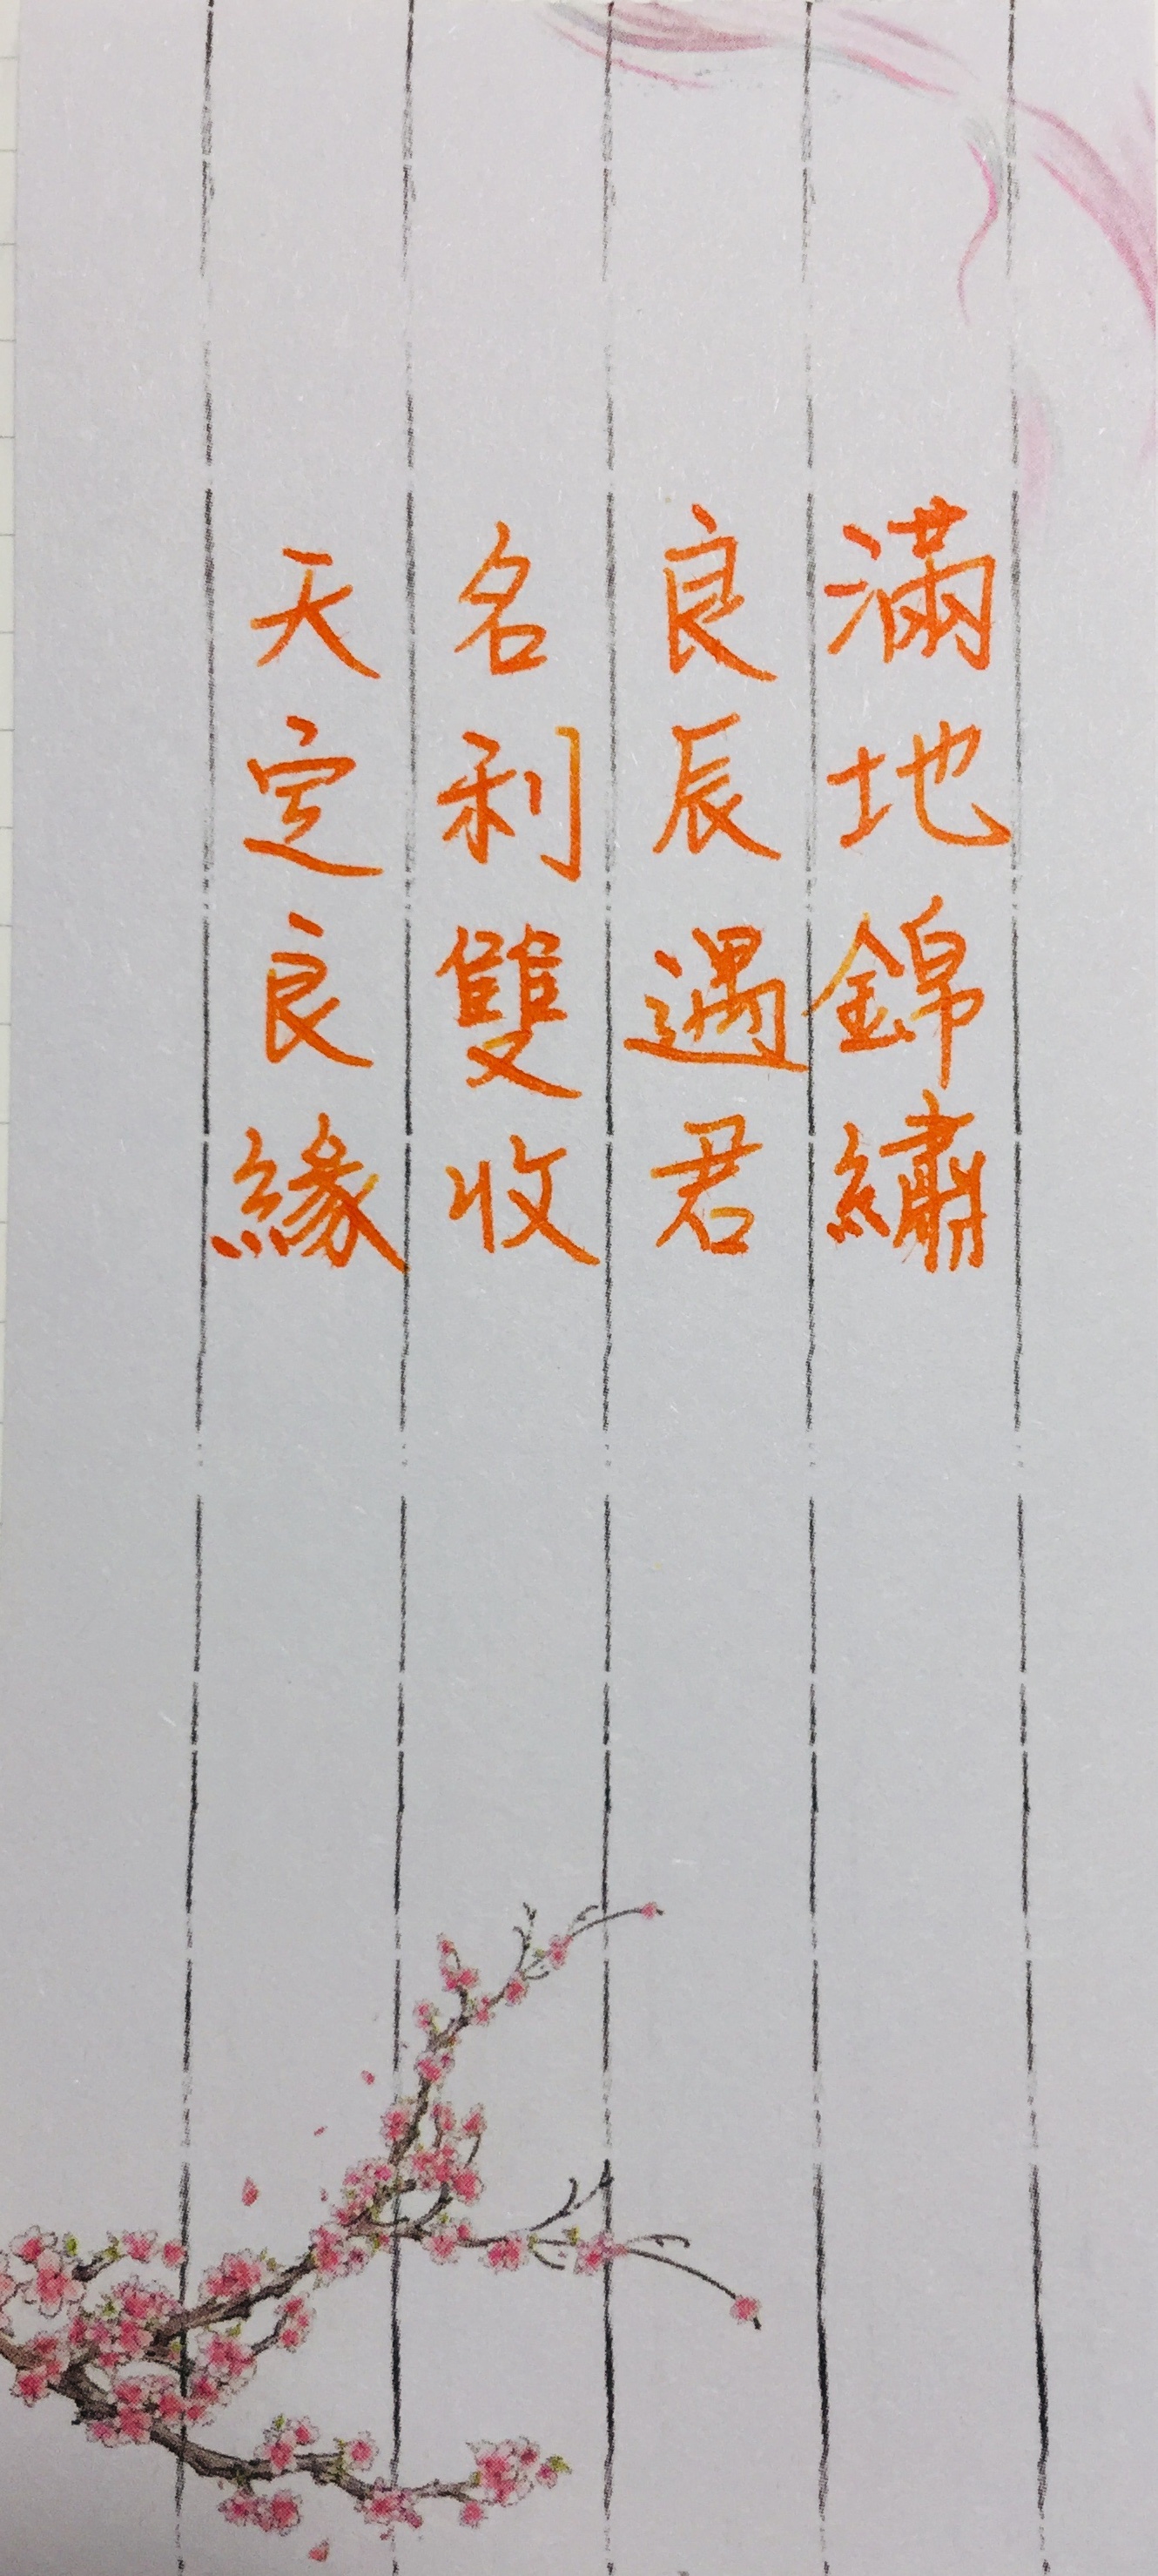 滿地錦繡
良辰遇君
名利雙收
天定良緣